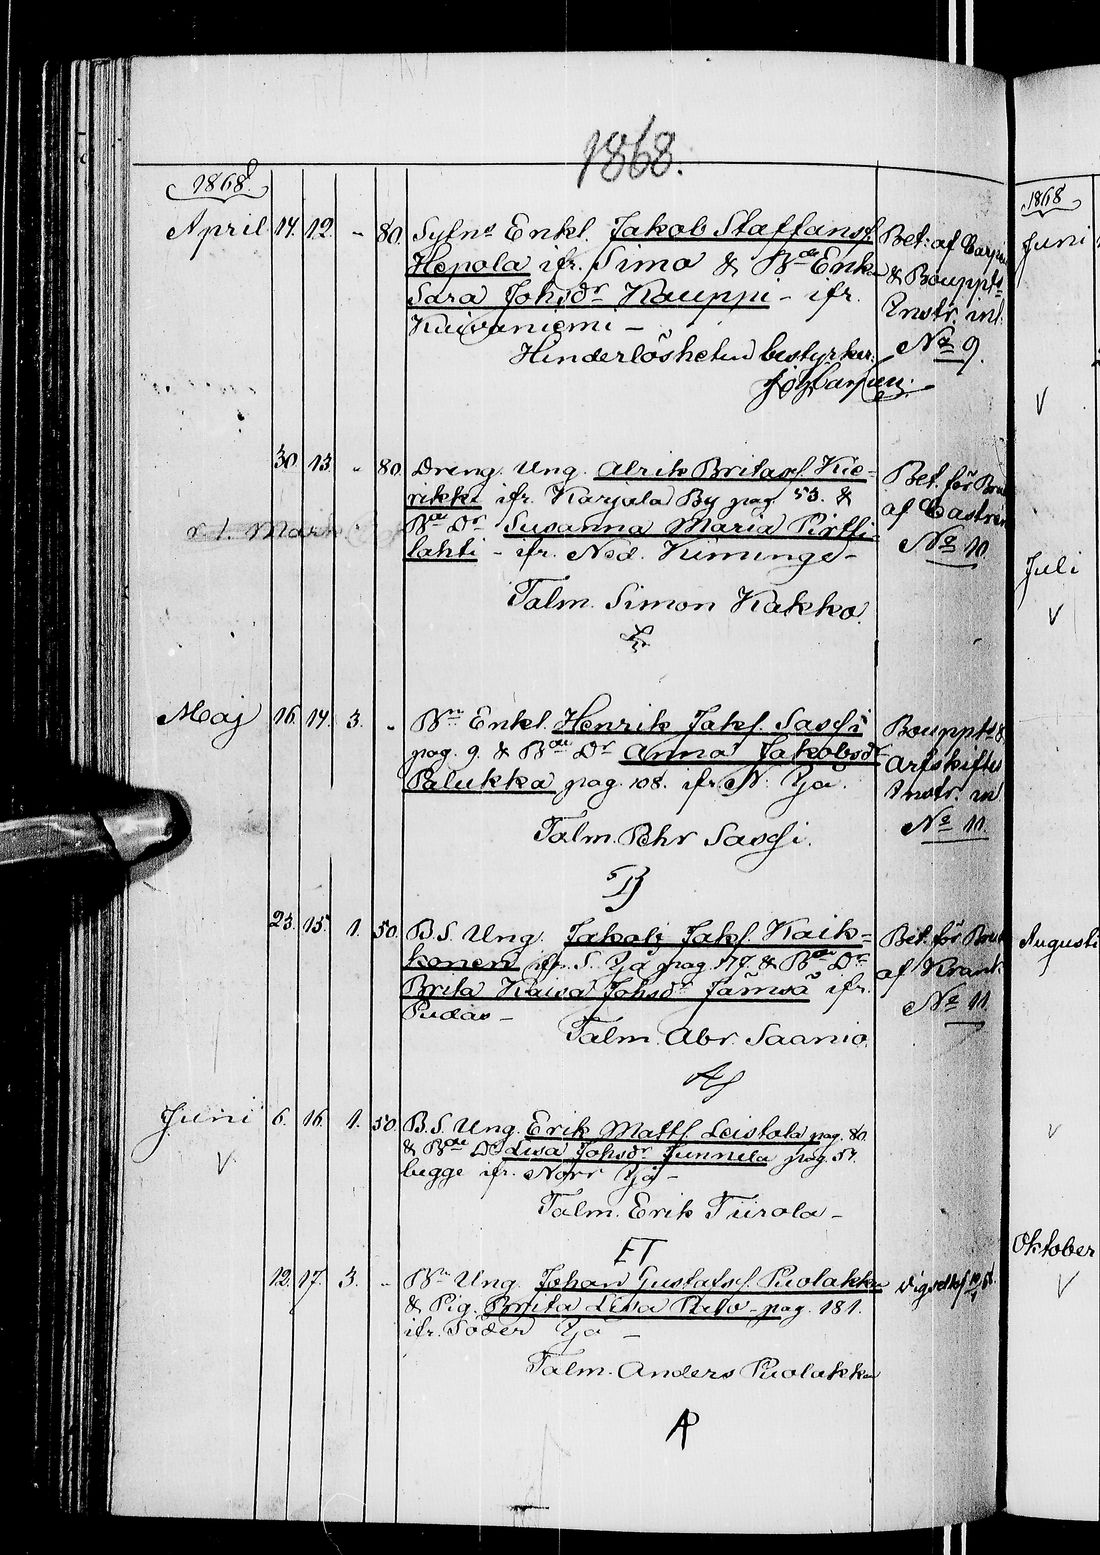 1868.
1868
April 17. 12. - 80. Sytn? Enkl. Jakob Staffanss.
Hepola ifr. Simo & Bde Enk.
Sara Johsdr Kauppi - ifr.
Kuivaniemi -
Hinderlösheten bestyrker.
Bet. af
& Bouppt.
Instr. inl.
No 9.
30 13. - 80. Dreng. Ung. Alrik Britas. Kie-
rikki ifr. Karjala By pag. 53. &
Bde Dr Susanna Maria Pirtti-
lahti - ifr. Ned. Kiminge -
Talm. Simon Kakko.
Bet. för
af Castrén
No 10
Maj 16. 14. 3. - Bn Enkl. Henrik Jakss. Sassi
pag. 9. & Bde Dr Anna Jakobsdr
Palukka pag. 108. ifr. N. Ijå.
Talm. Pehr Sassi.
Bouppt. &
Arfskifts
Instr. in
No 11.
23. 15. 1. 50. B.S. Ung. Jakob Jaks. Kaik-
konen ifr. S. Ijå pag. 177. & Bde Dr
Brita Kaisa Johsdr Jämsä ifr.
Pudas -
Talm. Abr. Saanio.
AS
Bet. för
af Krank
No 11.
Juni 6. 16. 1. 50. B.S. Ung. Erik Matts. Leistola pag. 80.
& Bde Dr Lisa Johsdr Junnila pag. 57.
begge ifr. Norr Ijå -
Talm. Erik Tiirola -
ET
12. 17. 3. - Bn Ung. Johan Gustafss. Puolakka
& Pig. Brita Lisa Puro - pag. 181.
ifr. Söder Ijå -
Talm. Anders Puolakka
AP
1868
Juni
Juli
Augusti
Oktober